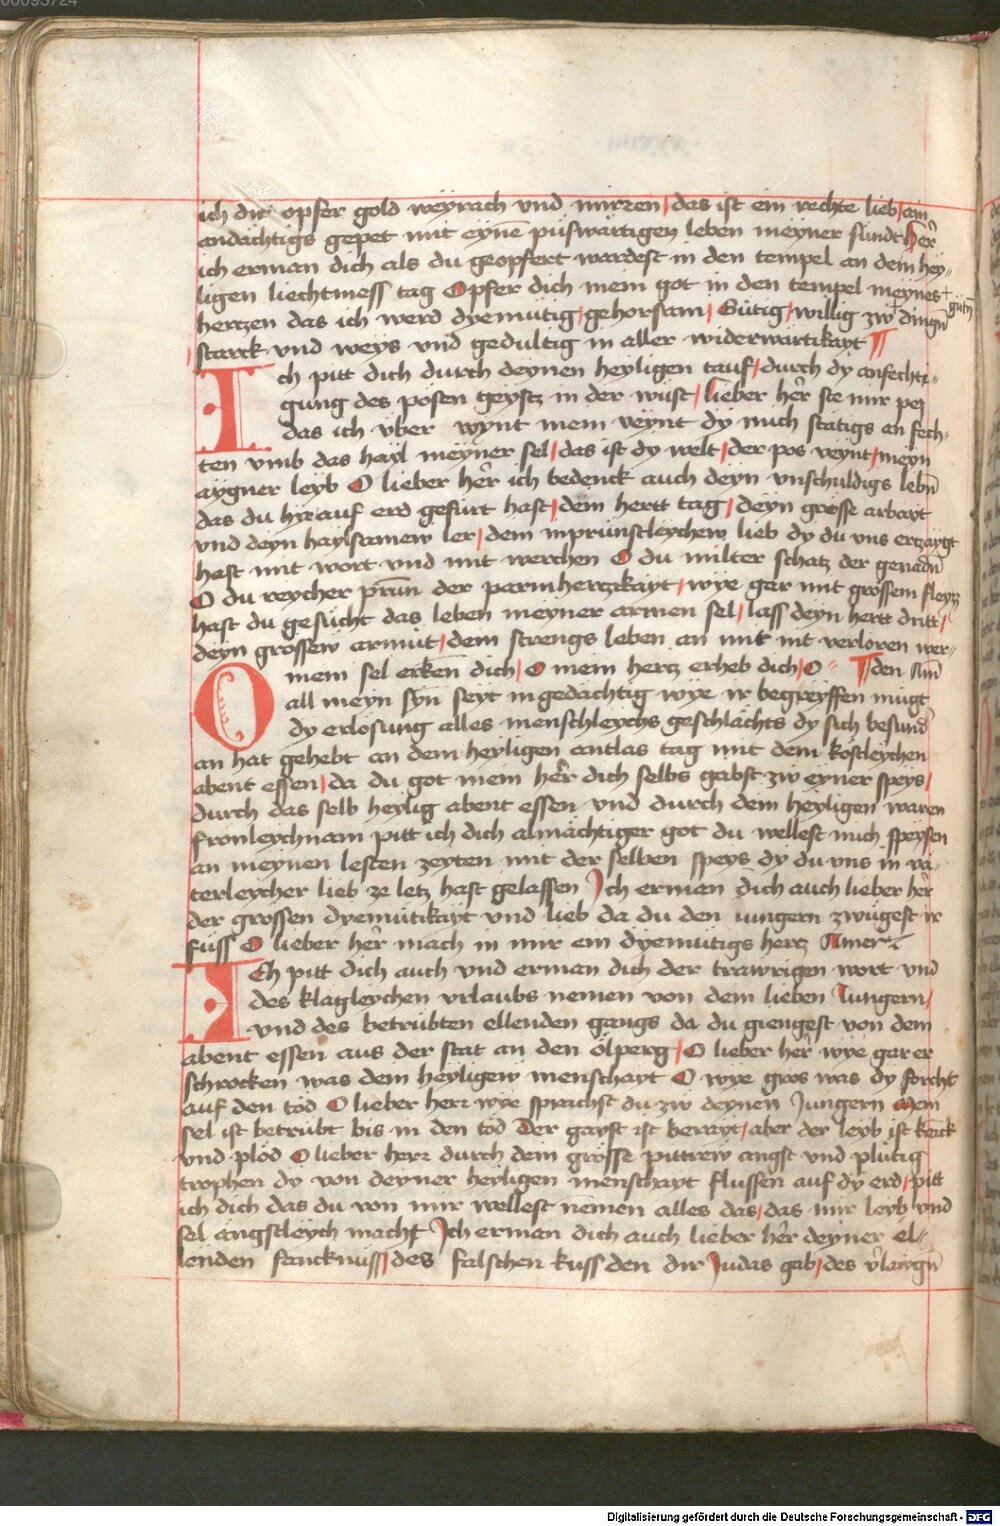 00095724
ich dir opfer gold weÿrach vnd mirren / das ist ein rechte lieb / ein
andächtigs gepet mit eÿnē püswärtigen leben meyner sündt her̄
ich erman dich als du geopfert wardest in den tempel an dem hey„
ligen liechtmess tag Opfer dich mein got in den tempel meÿnes
hertzen das ich werd dyemütig / gehorsam / Gütig / willig zw + dingn̄ + gütn̄
starck vnd weys vnd gedultig in aller widerwärtikayt ¶
Ich pitt dich durch deÿnen heyligen tauf / durch dy anfechti„
gung des pösen geystz in der wüst / lieber her̄ ste mir pei
das ich vber wynt mein veynt dÿ mich stätigs an fech„
ten vmb das hayl meÿner sel / das ist dy welt / der pos veÿnt / meyn
aÿgner leÿb O lieber her̄ ich bedenck auch deÿn vnschuldigs lebn̄
das du hÿe auf erd gefürt hast / dein hertt tag / deÿn grosse arbayt
vnd deyn haylsamew ler / dein inprünstleychew lieb dy du vns ertzaÿgt
hast mit wort vnd mit werchen O du milter schatz der genadn̄
O du reycher prūn der parmhertzikayt / wÿe gar mit grossem fleyzz
hast du gesücht das leben meyner armen sel / lass deyn hertt dritt /
deÿn grossew armüt / dein strengs leben an mir nit verloren wer„
O mein sel erken̄ dich / O mein hertz erheb dich / O „ ¶ den Am̄
all meyn syn̄ seyt ingedächtig wÿe ir begreÿffen mügt
dy erlosung alles menschleychs geschlächts dy sich besund̄
an hat gehebt an dem heyligen antlas tag mit dem köstleychen
abent essen / da du got mein her̄ dich selbs gabst zw eyner speys /
durch das selb heylig abent essen vnd durch dein heyligen waren
fronleychnam pitt ich dich almächtiger got du wellest mich speysen
an meynen lesten zeyten mit der selben speys dy du vns in vä„
terleycher lieb ze letz hast gelassen Ich erman dich auch lieber her̄
der grossen dyemütikayt vnd lieb da du den iungern zwügest ir
füss O lieber her̄ mach in mir ein dyemütigs hertz Amen
Ich pitt dich auch vnd erman dich der trawrigen wort vnd
des klägleychen vrlaubs nemen von dem lieben Iungern /
vnd des betrübten ellenden gangs da du giengest von dem
abent essen aus der stat an den ölperg / O lieber her̄ wye gar er
schrocken was dein heyligew menschayt O wÿe gros was dy forcht
auf den töd O lieber herr wye sprachst du zw deynen Iungern Mein
sel ist betrübt bis in den töd Der gayst ist berayt / aber der leyb ist kranck
vnd plöd O lieber herr durch dein grosse pittrew angst vnd plütig
trophen dy von deyner heyligen menschayt flussen auf dy erd / pitt
ich dich das du von mir wellest nemen alles das / das mir leyb vnd
sel ängstleych macht Ich erman dich auch lieber her̄ deyner el„
lenden fancknüss / des falschen kuss den dir Iudas gab / des v̄laugn̄
Digitalisierung gefördert durch die Deutsche Forschungsgemeinschaft - DFG